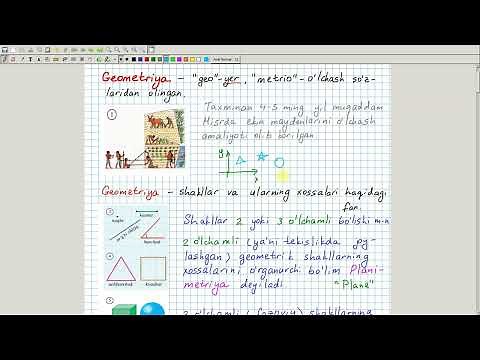 Geometriya – "geo"-yer, "metrio" - o'lchash so'z-
laridan olingan.
1
Taxminan 4-5 ming yil muqaddam
Misrda ekin maydonlarini o'lchash
amaliyoti olib borilgan
y
x
Geometriya – shakllar va ularning xossalari haqidagi
fan.
2
nuqta
kesma
to'g'ri chiziq
burchak
Shakllar 2 yoki 3 o'lchamli bo'lishi m-n
2 o'lchamli (ya'ni tekislikda joy-
lashgan) geometrik shakllarning
xossalarini o'rganarchi bo'lim Plani-
metriya deyiladi
"Plane"
uchburchak
kvadrat
3 o'lchamli (fazoviy) shakllarning